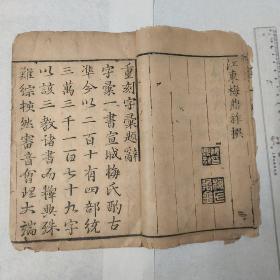 江東梅鼎祚撰
重刻字彙題辭
字彙一書宣城梅氏酌古
準今以二百十有四部統
三萬三千一百七十九字
以該三教諸書而釋典殊
難綜然審音會理大端